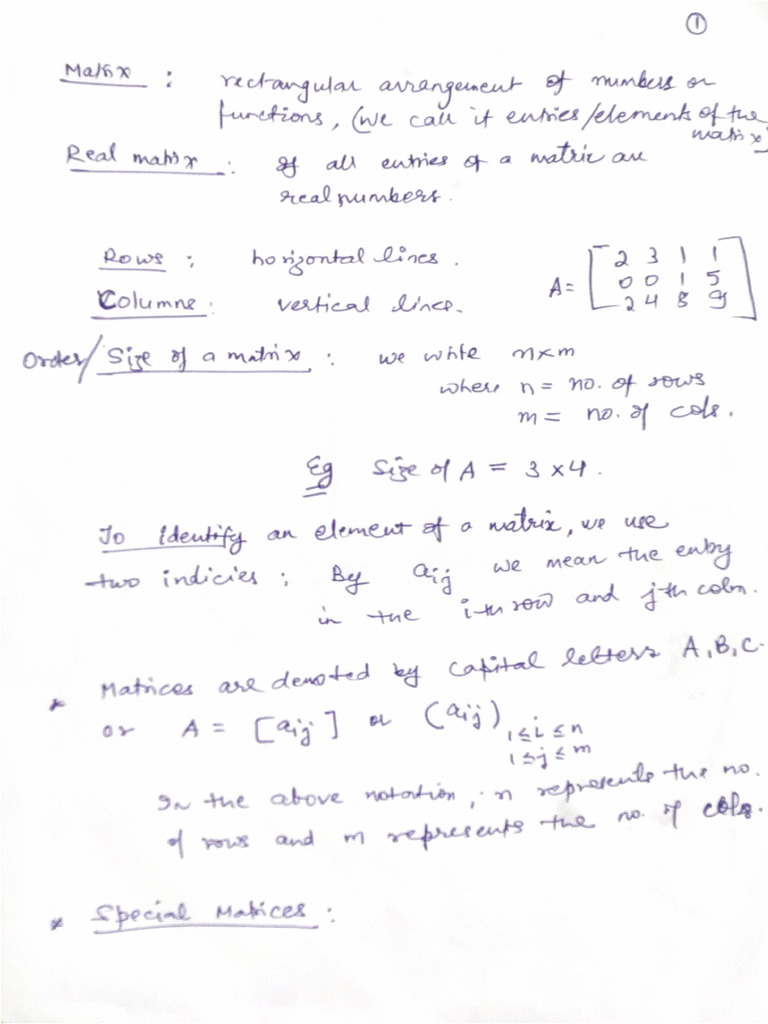 ①
Matrix : rectangular arrangement of numbers or
functions, (we call it entries/elements of the
matrix)
Real matrix : If all entries of a matrix are
real numbers.
Rows : horizontal lines.
Columns : vertical lines.
A = [ 2 3 1 1
0 0 1 5
2 4 8 9 ]
Order/Size of a matrix : we write n×m
where n = no. of rows
m = no. of cols.
Eg Size of A = 3 × 4.
To Identify an element of a matrix, we use
two indicies ; By aij we mean the entry
in the i-th row and jth coln.
* Matrices are denoted by capital letters A, B, C.
or A = [aij] or (aij) 1≤i≤n
1≤j≤m
In the above notation, n represents the no.
of rows and m represents the no. of cols.
* Special Matrices :